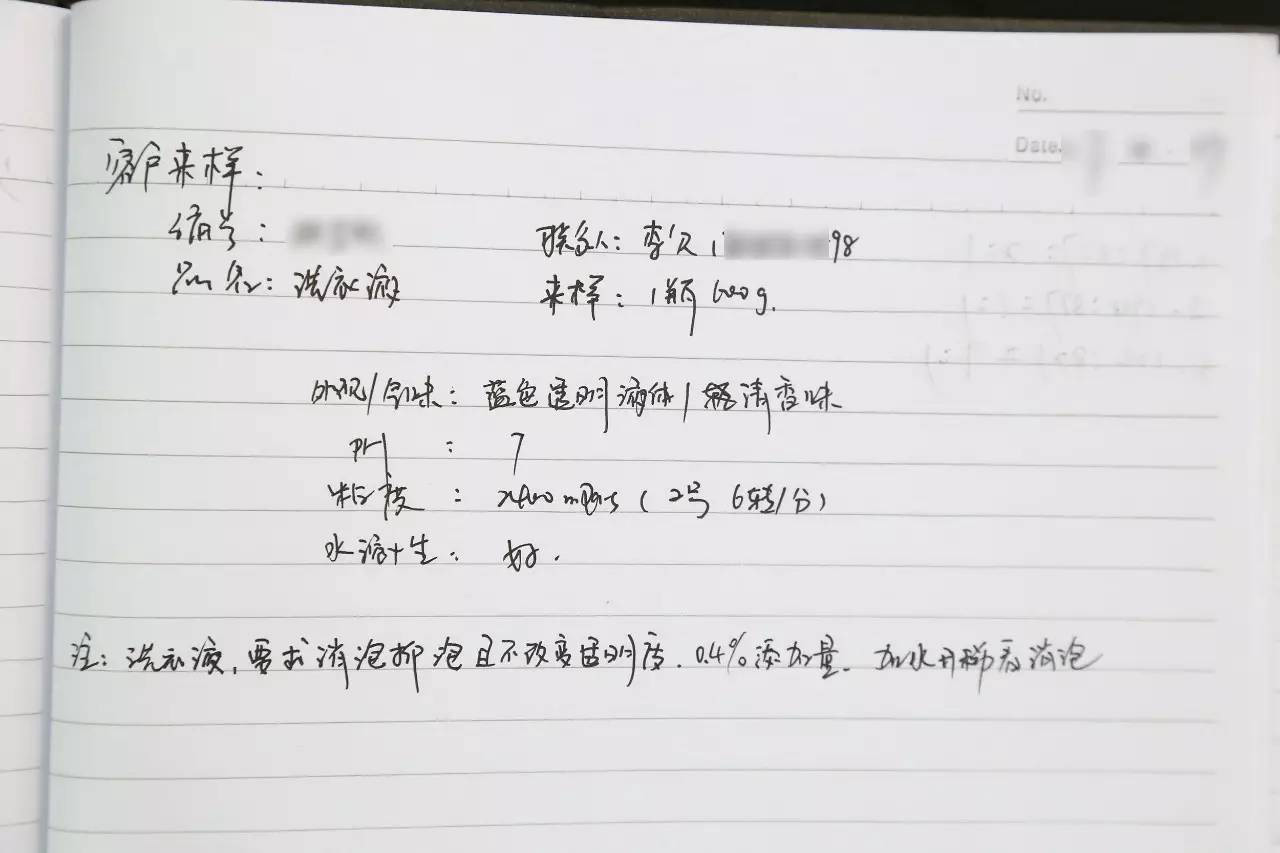 No.
Date.
客户来样:
编号:
联系人: 李 1 98
品名: 洗衣液
来样: 1瓶 600g.
外观/气味: 蓝色透明液体/ 清香味
pH : 7
粘度 : mPa·s ( 2号 6转/分)
水溶性: 好.
注: 洗衣液, 要求消泡抑泡且不改变透明度. 0.4%添加量. 加水 稀看消泡